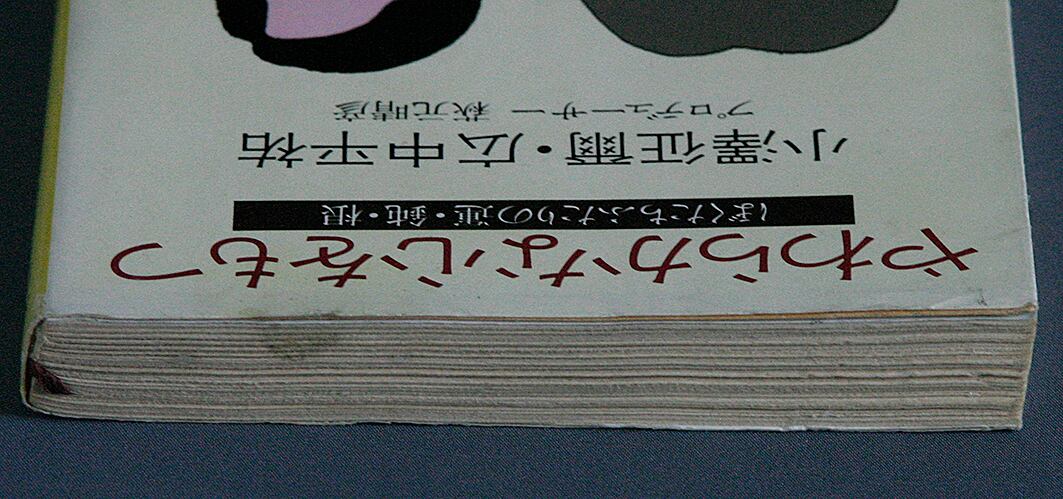 やわらかな心をもつ
ぼくたちふたりの運・鈍・根
小澤征爾・広中平祐
プロデューサー 萩元晴彦